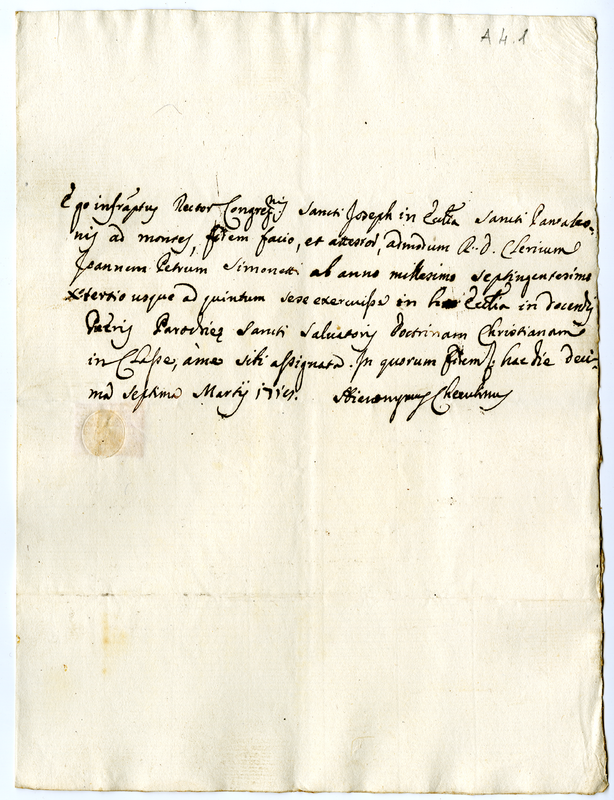 A 4. 1
Ego infrāptus Rector Congreg̃nis Sancti Joseph in Ecc̃lia Sancti Pantaleo-
nis ad montes, fidem facio, et attestor, admodum R. D. Clericum
Joannem Petrum Simonetti ab anno millesimo septingentesimo
tertio usque ad quintum sese exercuisse in Ecc̃lia in docendis
Pueris Parochiæ Sancti Salvatoris Doctrinam Christianam
in Classe, à me sibi assignata. In quorum fidem hac die deci-
ma septima Martij
Hieronymus Cherubinus